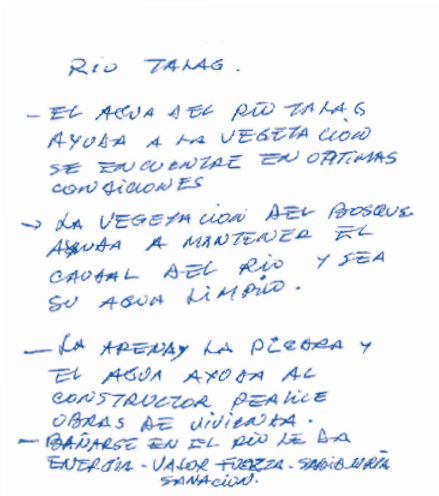 RIO TALAG.
- EL AGUA DEL RIO TALAG
AYUDA A LA VEGETACION
SE ENCUENTRE EN OPTIMAS
CONDICIONES
→ LA VEGETACION DEL BOSQUE
AYUDA A MANTENER EL
CAUDAL DEL RIO Y SEA
SU AGUA LIMPIO.
- LA ARENA Y LA PIEDRA Y
EL AGUA AYUDA AL
CONSTRUCTOR REALICE
OBRAS DE VIVIENDA.
- BAÑARSE EN EL RIO LE DA
ENERGIA - VALOR FUERZA - SABIDURIA
SANACION.